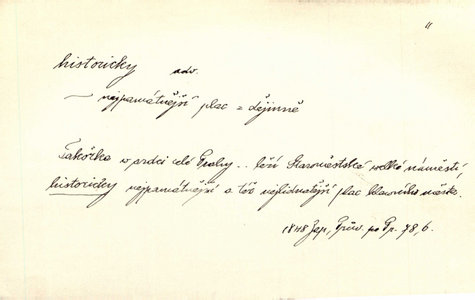 historicky adv.
~ nejpamátnější plac = dějinně
Takořka v srdci celé Prahy .. leží Staroměstské velké náměstí,
historicky nejpamátnější a též nejlidnatější plac hlavního města.
1848 Zap, Prův. po Pr. 78, 6.